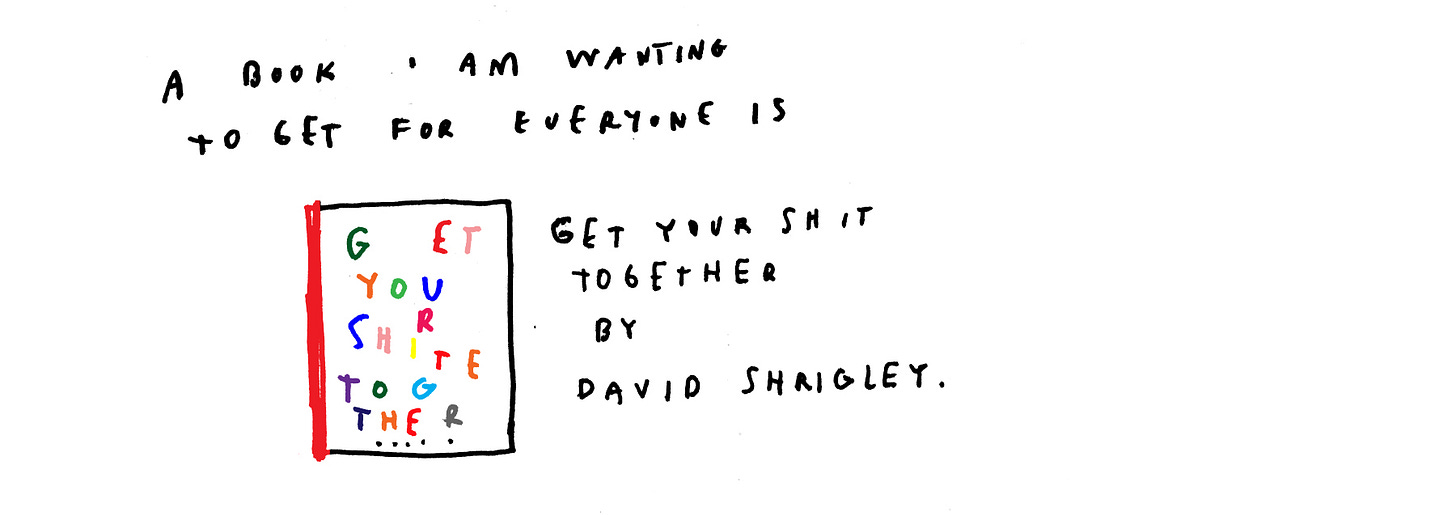 A BOOK I AM WANTING
TO GET FOR EVERYONE IS
G ET
YOU
R
SHITE
TOG
THER
.....
GET YOUR SHIT
TOGETHER
BY
DAVID SHRIGLEY.